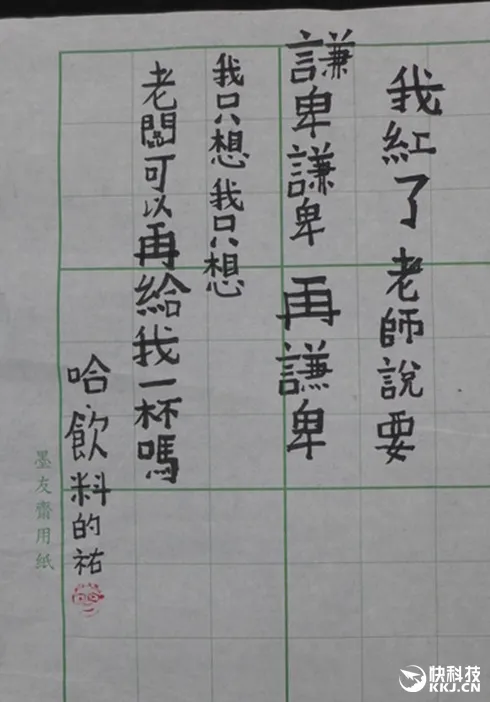 我紅了老師說要
謙卑謙卑再謙卑
我只想我只想
老闆可以再給我一杯嗎
哈飲料的祐
墨友齋用紙
快科技
KKJ.CN